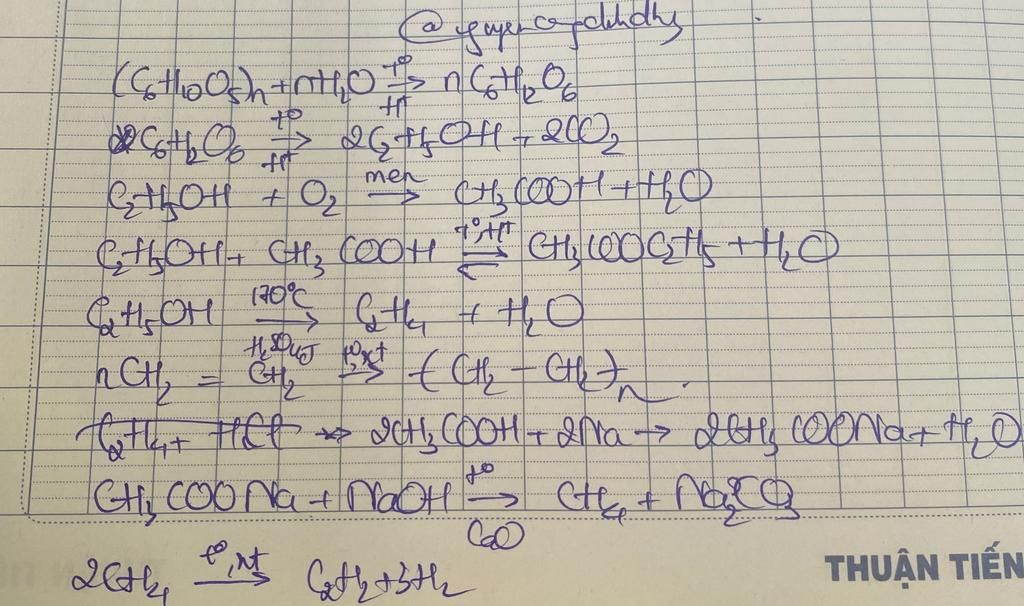 (C6H10O5)n + nH2O t° → H+ nC6H12O6
C6H12O6 t° → H+ 2C2H5OH + 2CO2
C2H5OH + O2 men → CH3COOH + H2O
C2H5OH + CH3COOH t°, H+ ⇌ CH3COOC2H5 + H2O
C2H5OH 170°C → H2SO4đ C2H4 + H2O
nCH2 = CH2 t°, xt → (CH2 - CH2)n
C2H4 + HCl → 2CH3COOH + 2Na → 2CH3COONa + H2O
CH3COONa + NaOH t° → CaO CH4 + Na2CO3
2CH4 t°, xt → C2H2 + 3H2
THUẬN TIẾN